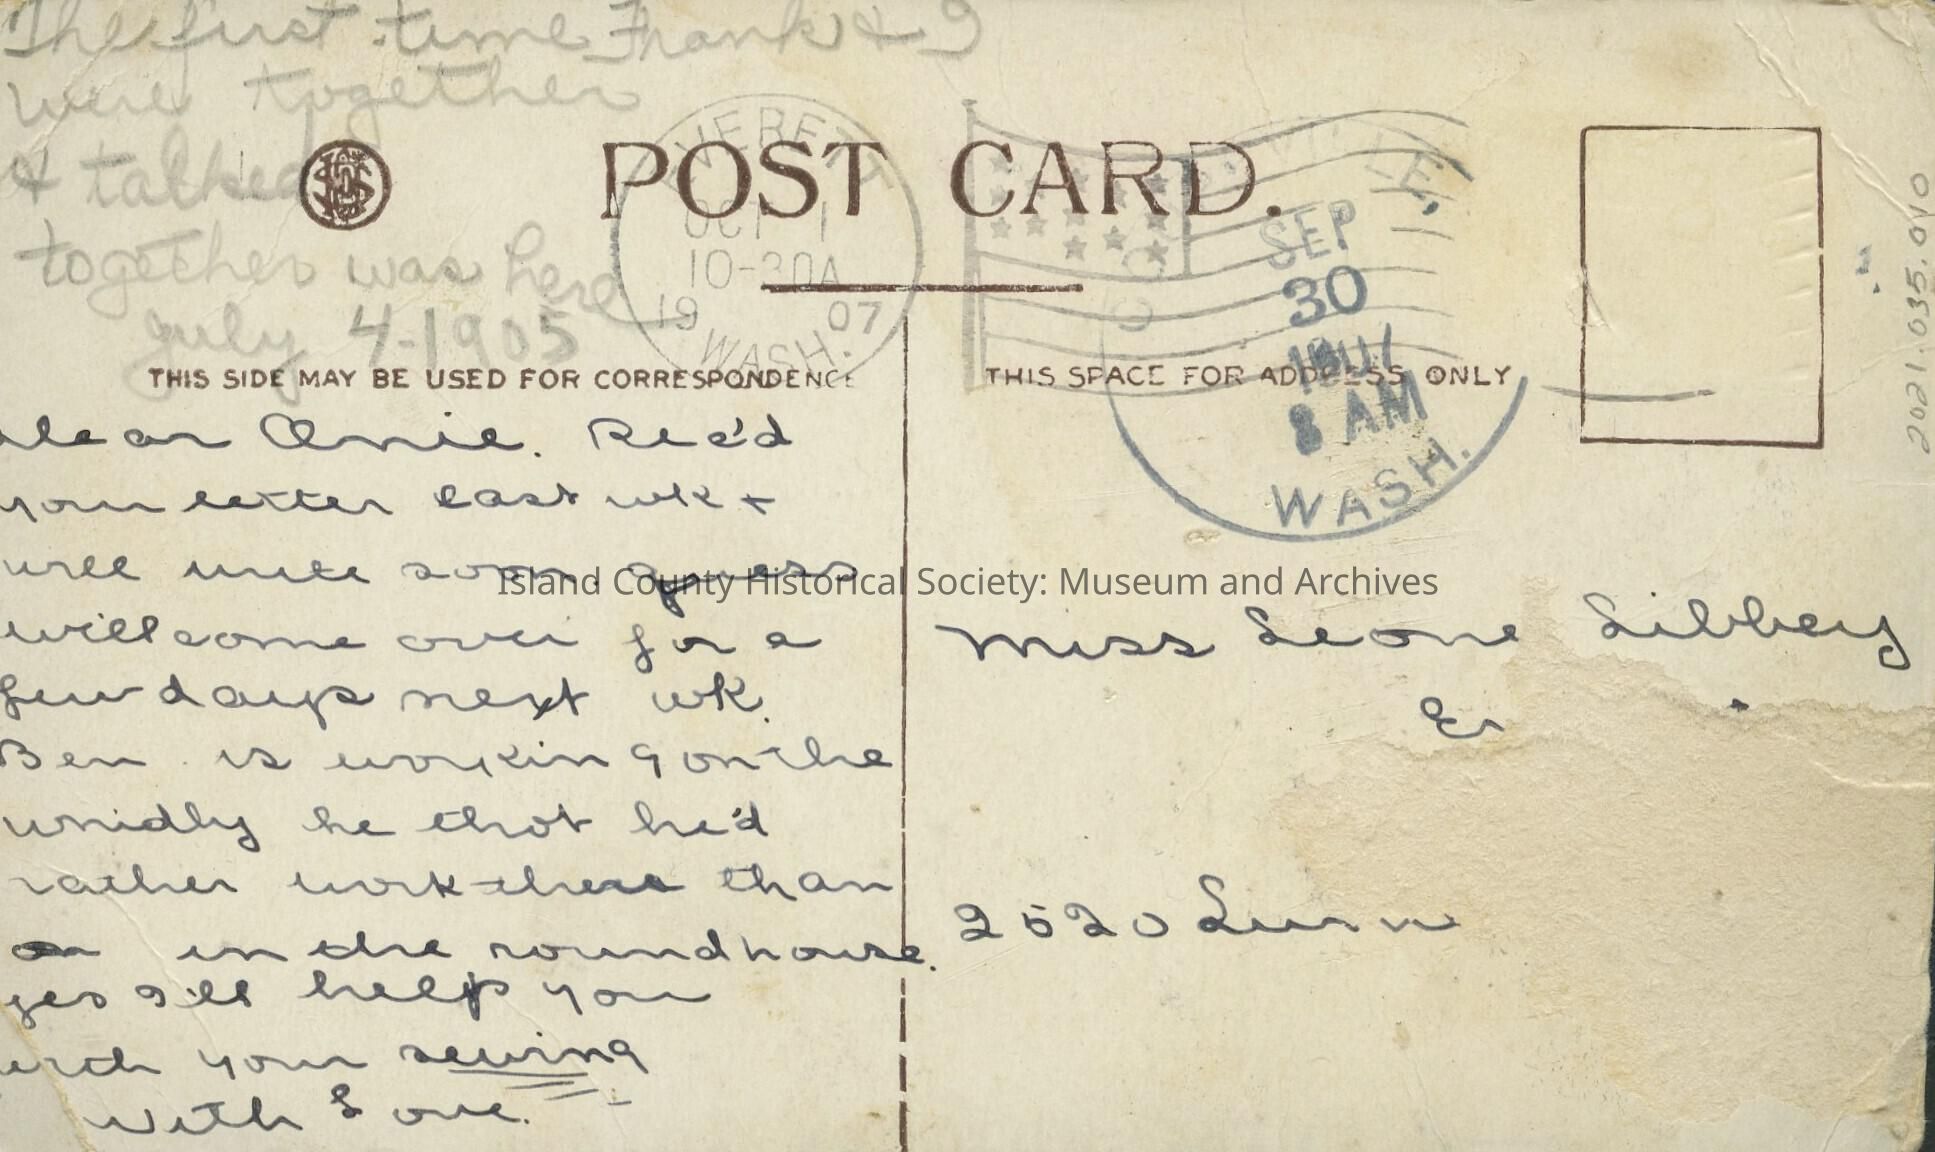 The first time Frank & I
were together
& talked
together was here
July 4-1905
POST CARD.
EVERETT
OCT 1
10-30A
19 07
WASH.
VILLE,
SEP
30
1907
8 AM
WASH.
2021.035.040
THIS SIDE MAY BE USED FOR CORRESPONDENCE
THIS SPACE FOR ADDRESS ONLY
dear Onie. Rec'd
your letter last wk +
will write soon. guess
will come over for a
few days next wk.
Ben is working on the
he thot he'd
rather work there than
in the roundhouse.
yes I'll help you
with your sewing
with Love.
Island County Historical Society: Museum and Archives
Miss Leone Libbey
Ev
2520